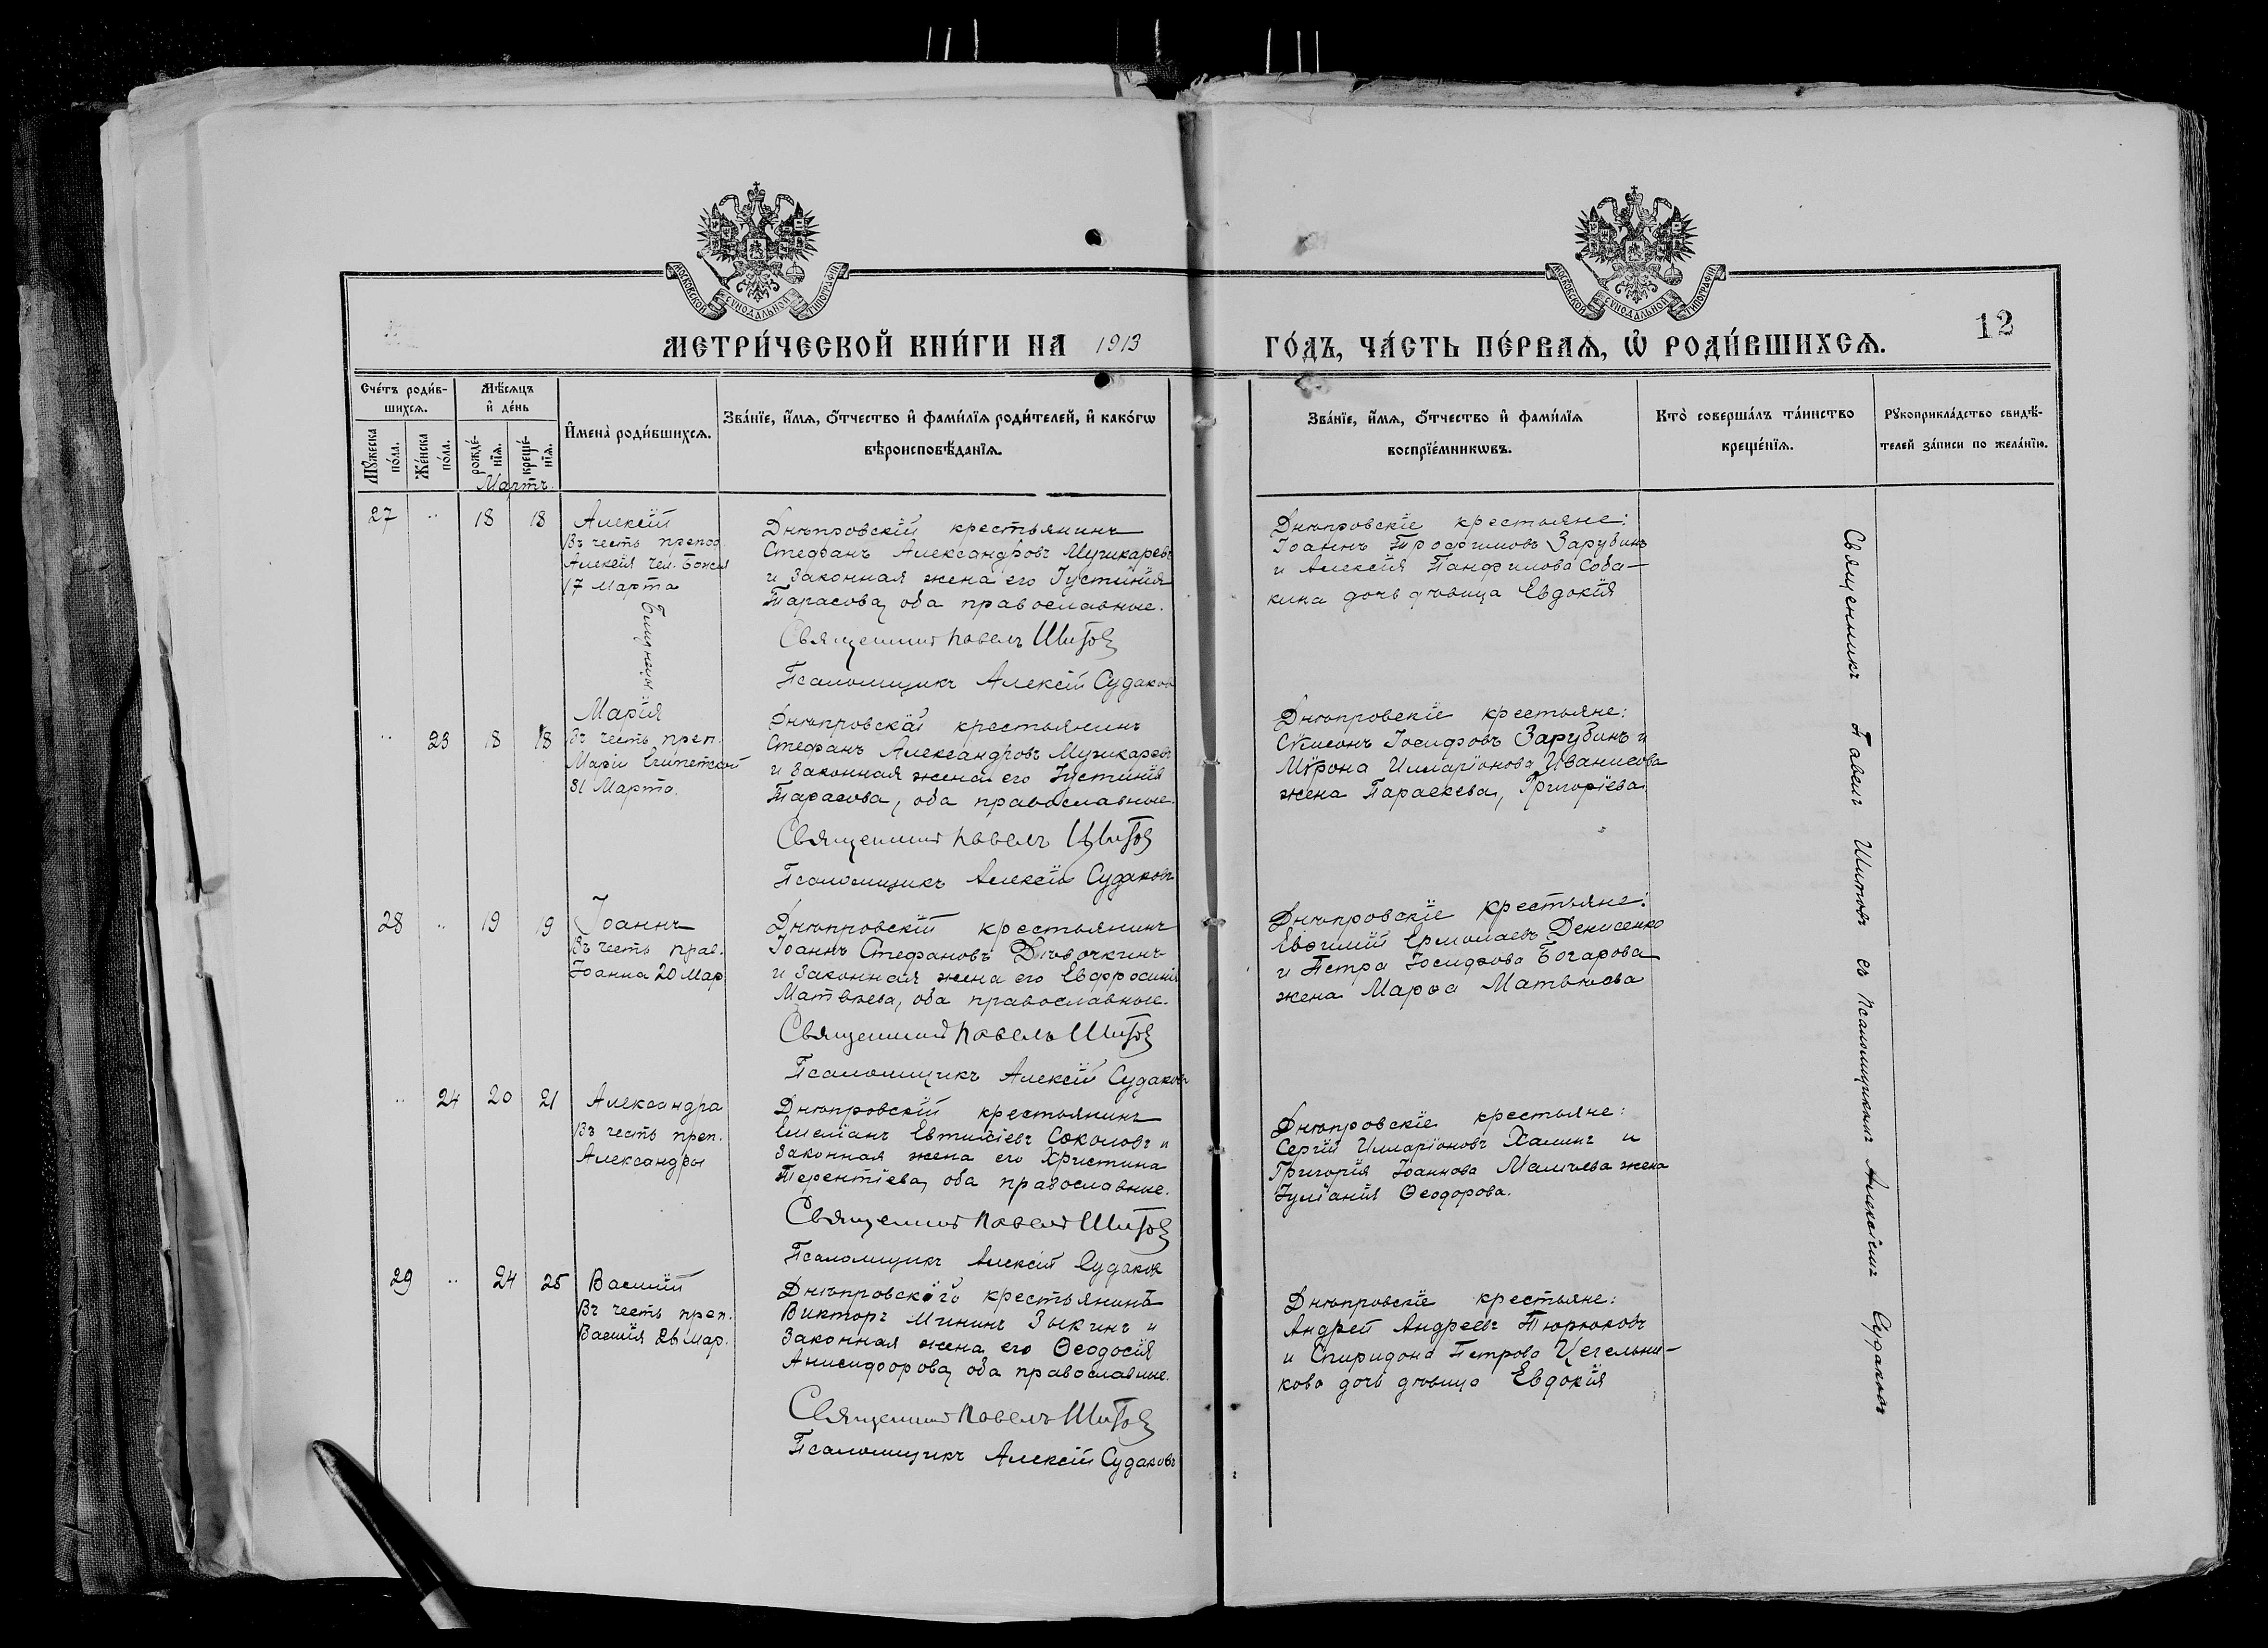 МОСКОВСКОЙ СУНОДАЛЬНОЙ ТИПОГРАФІИ
МОСКОВСКОЙ СУНОДАЛЬНОЙ ТИПОГРАФІИ
МЕТРИ́ЧЕСКОЙ КНИ́ГИ НА 1913
ГО́ДЪ, ЧА́СТЬ ПЕ́РВАѦ, Ѡ҆ РОДИ́ВШИХСѦ.
12
Сче́тъ роди́в-
шихсѧ.
Мѣ́сѧцъ
и҆ де́нь
Мꙋ́жеска по́ла.
Же́нска по́ла.
рожде́-нїѧ.
креще́-нїѧ.
И҆мена̀ роди́вшихсѧ.
Зва́нїе, и҆́мѧ, ѻ҆́тчество и҆ фами́лїѧ роди́телей, и҆ како́гѡ
вѣроисповѣ́данїѧ.
Зва́нїе, и҆́мѧ, ѻ҆́тчество и҆ фами́лїѧ
воспрїе́мникѡвъ.
Кто̀ соверша́лъ та́инство
креще́нїѧ.
Рꙋкоприкла́дство свидѣ́-
телей за́писи по жела́нїю.
Мартъ.
27 " 18 18
Алексій
Въ честь препод.
Алексія чел. Божія
17 Марта
Близнецы:
Днѣпровскій крестьянинъ
Стефанъ Александровъ Мужикаревъ
и законная жена его Іустинія
Тарасова, оба православные.
Священникъ Павелъ Шитовъ
Псаломщикъ Алексій Судаковъ
Днѣпровскіе крестьяне:
Іоаннъ Трофимовъ Зарубинъ
и Алексія Панфилова Соба-
кина дочь дѣвица Евдокія
" 23 18 18
Марія
Въ честь преп.
Маріи Египетской
31 Марта.
Днѣпровскій крестьянинъ
Стефанъ Александровъ Мужикаревъ
и законная жена его Іустинія
Тарасова, оба православные.
Священникъ Павелъ Шитовъ
Псаломщикъ Алексій Судаковъ
Днѣпровскіе крестьяне:
Сѵмеонъ Іосифовъ Зарубинъ и
Мѵрона Илларіонова Иванисова
жена Параскева, Григоріева
28 " 19 19
Іоаннъ
Въ честь прав.
Іоанна 20 Мар.
Днѣпровскій крестьянинъ
Іоаннъ Стефановъ Дѣвочкинъ
и законная жена его Евфросинія
Матвѣева, оба православные.
Священникъ Павелъ Шитовъ
Псаломщикъ Алексій Судаковъ
Днѣпровскіе крестьяне:
Евѳимій Ермолаевъ Денисенко
и Петра Іосифова Богарова
жена Марѳа Матвѣева
" 24 20 21
Александра
Въ честь преп.
Александры
Днѣпровскій крестьянинъ
Емеліанъ Евтихіевъ Соколовъ и
законная жена его Христина
Терентіева, оба православные.
Священникъ Павелъ Шитовъ
Псаломщикъ Алексій Судаковъ
Днѣпровскіе крестьяне:
Сергій Илларіоновъ Халинъ и
Григорія Іоаннова Малѣева жена
Іуліанія Ѳеодорова.
29 " 24 25
Василій
Въ честь преп.
Василія 26 Мар.
Днѣпровскаго крестьянина
Викторъ Мининъ Зыкинъ и
законная жена его Ѳеодосія
Анисифорова, оба православные.
Священникъ Павелъ Шитовъ
Псаломщикъ Алексій Судаковъ
Днѣпровскіе крестьяне:
Андрей Андреевъ Тюрюковъ
и Спиридона Петрова Цегельни-
кова дочь дѣвица Евдокія
Священникъ Павелъ Шитовъ съ псаломщикомъ Алексіемъ Судаковъ